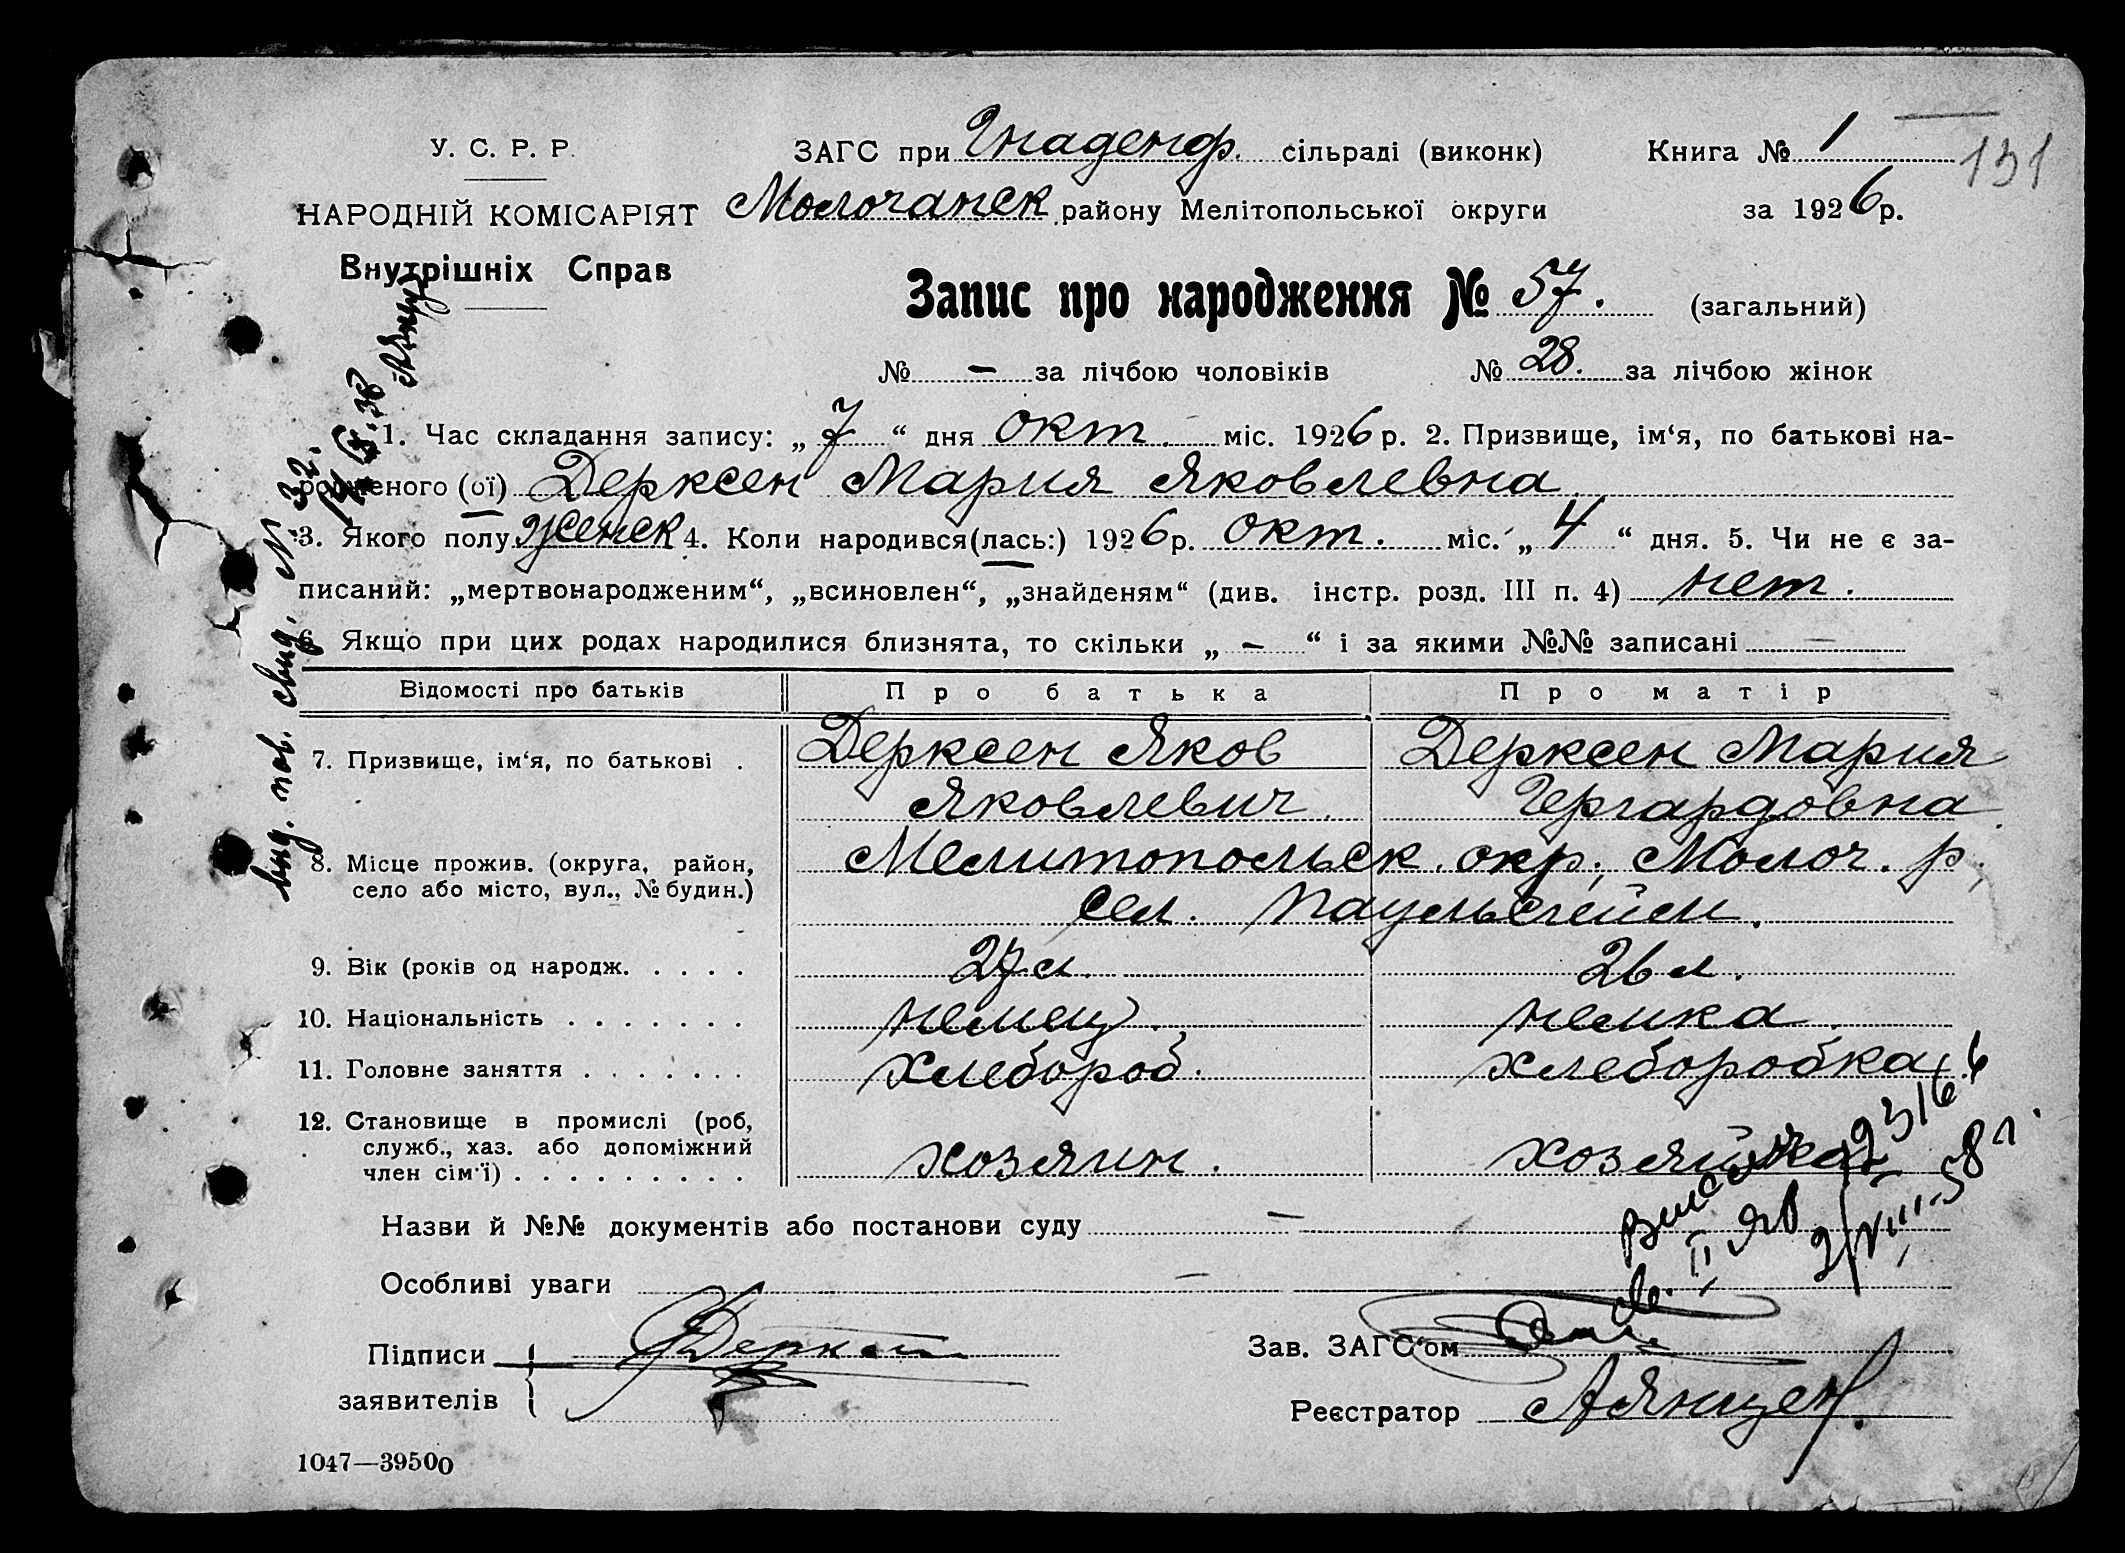 У. С. Р. Р.
НАРОДНІЙ КОМІСАРІЯТ
Внутрішніх Справ
ЗАГС при Гнаденф. сільраді (виконк)
Молочанск району Мелітопольської округи
Книга № 1
за 1926 р.
131
Запис про народження № 57. (загальний)
№ — за лічбою чоловіків № 28. за лічбою жінок
1. Час складання запису: „7“ дня окт. міс. 1926 р. 2. Призвище, ім‘я, по батькові на-
родженого (ої) Дерксен Мария Яковлевна
3. Якого полу женск 4. Коли народився(лась:) 1926 р. окт. міс. „4“ дня. 5. Чи не є за-
писаний: „мертвонародженим“, „всиновлен“, „знайденям“ (див. інстр. розд. III п. 4) нет.
6. Якщо при цих родах народилися близнята, то скільки „—“ і за якими №№ записані —
Відомості про батьків Про батька Про матір
7. Призвище, ім‘я, по батькові . Дерксен Яков Дерксен Мария
Яковлевич. Гергардовна
8. Місце прожив. (округа, район, Мелитопольск. окр., Молоч. р.,
село або місто, вул., № будин.) сел. Паульсгейм.
9. Вік (років од народж. . . . . 27 л. 26 л.
10. Національність . . . . . . . немец. немка.
11. Головне заняття . . . . . . . хлебороб. хлеборобка.
12. Становище в промислі (роб,
служб., хаз. або допоміжний
член сім‘ї) . . . . . . . . . хозяин. хозяйка
Назви й №№ документів або постанови суду —
Особливі уваги —
Підписи
заявителів
Дерксен
Зав. ЗАГС‘ом
Реєстратор АЯнцен.
1047—39500
выд. пов. свид. № 32.
II ЯР
2/VIII-58 г.